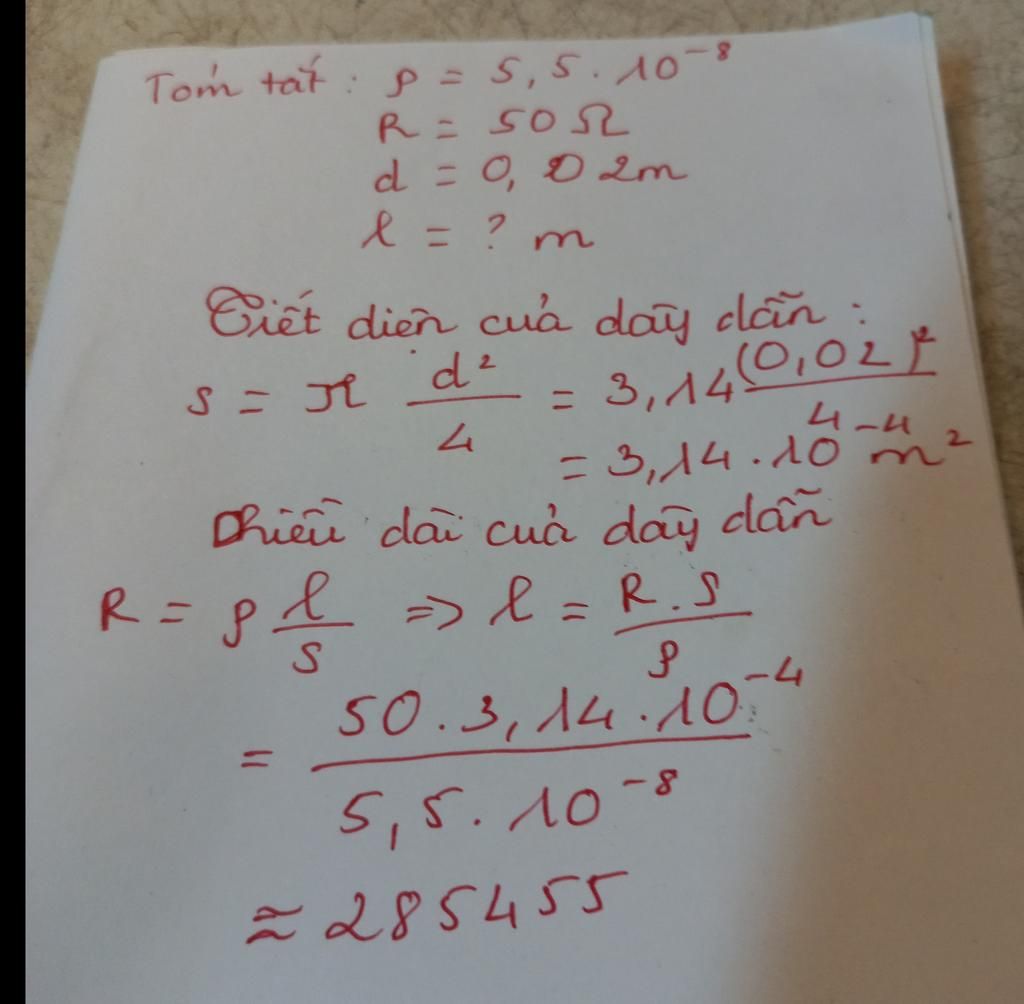 Tóm tắt: ρ = 5,5.10⁻⁸
R = 50Ω
d = 0,02m
l = ? m
Tiết diện của dây dẫn:
s = π d²/4 = 3,14 (0,02)²/4
= 3,14.10⁻⁴ m²
Chiều dài của dây dẫn
R = ρ l/s => l = R.S/ρ
= 50.3,14.10⁻⁴/5,5.10⁻⁸
≈ 285455